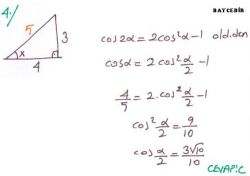 BAYCEBİR
4.)
5
3
x
4
cos2α = 2cos²α - 1 old.dan
cosα = 2cos² α/2 - 1
4/5 = 2.cos² α/2 - 1
cos² α/2 = 9/10
cos α/2 = 3√10/10
CEVAP: C